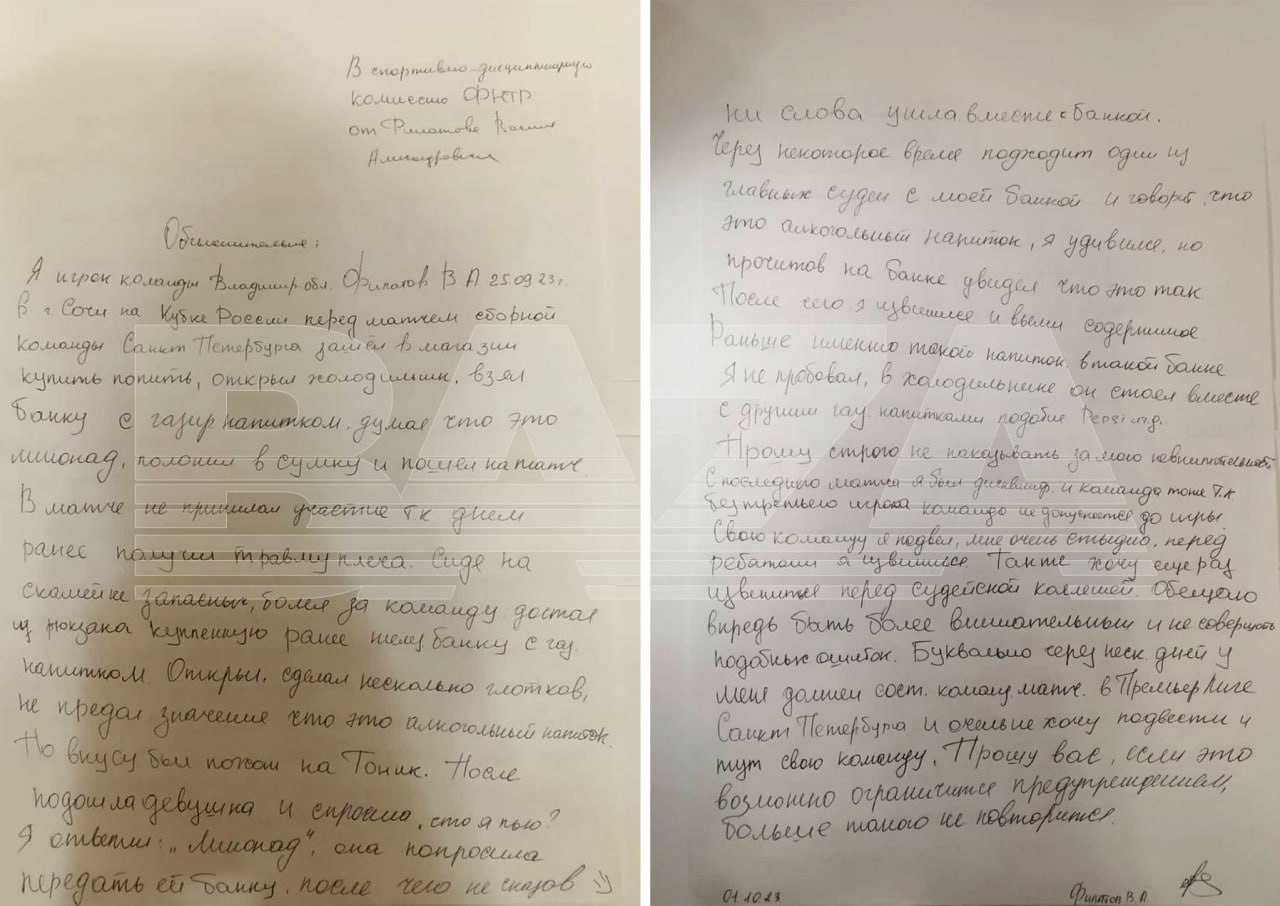 В спортивно-дисциплинарную
комиссию ФНТР
от Филатова
Объяснительная:
Я игрок команды Владимир обл. Филатов В А 25.09.23 г.
в г. Сочи на Кубке России перед матчем сборной
команды Санкт Петербурга зашёл в магазин
купить попить, открыл холодильник, взял
банку с газир напитком. думая что это
лимонад, положил в сумку и пошёл на матч.
В матче не принимал участие т.к днем
ранее получил травму плеча. Сидя на
скамейке запасных, болея за команду достал
из рюкзака купленную ранее желез. банку с газ.
напитком. Открыл, сделал несколько глотков,
не предал значение что это алкогольный напиток.
По вкусу был похож на Тоник. После
подошла девушка и спросила, что я пью?
Я ответил: „Лимонад", она попросила
передать ей банку, после чего не сказов
ни слова ушла вместе с банкой.
Через некоторое время подходит один из
главных судей с моей банкой и говорит, что
это алкогольный напиток, я удивился, но
прочитов на банке увидел что это так.
После чего я извинился и вылил содержимое
Раньше именно такой напиток. в такой банке
я не пробовал, в холодильнике он стоял вместе
с другими газ. напитками подобие Pepsi и тд.
Прошу строго не наказывать за мою невнимательность
С последнего матча я был дисквалиф. и команда тоже т.к.
без третьего игрока команда не допускается до игры
Свою команду я подвел, мне очень стыдно, перед
ребятами я извинился. Также хочу еще раз
извинится перед судейской коллегией. Обещаю
впредь быть более внимательным и не совершать
подобных ошибок. Буквально через неск. дней у
меня должен сост. команд матч. в Премьер Лиге
Санкт Петербурга и очень не хочу подвести и
тут свою команду. Прошу вас, если это
возможно ограничится предупреждением,
больше такого не повторится.
01.10.23 Филатов В.А.
BAZA